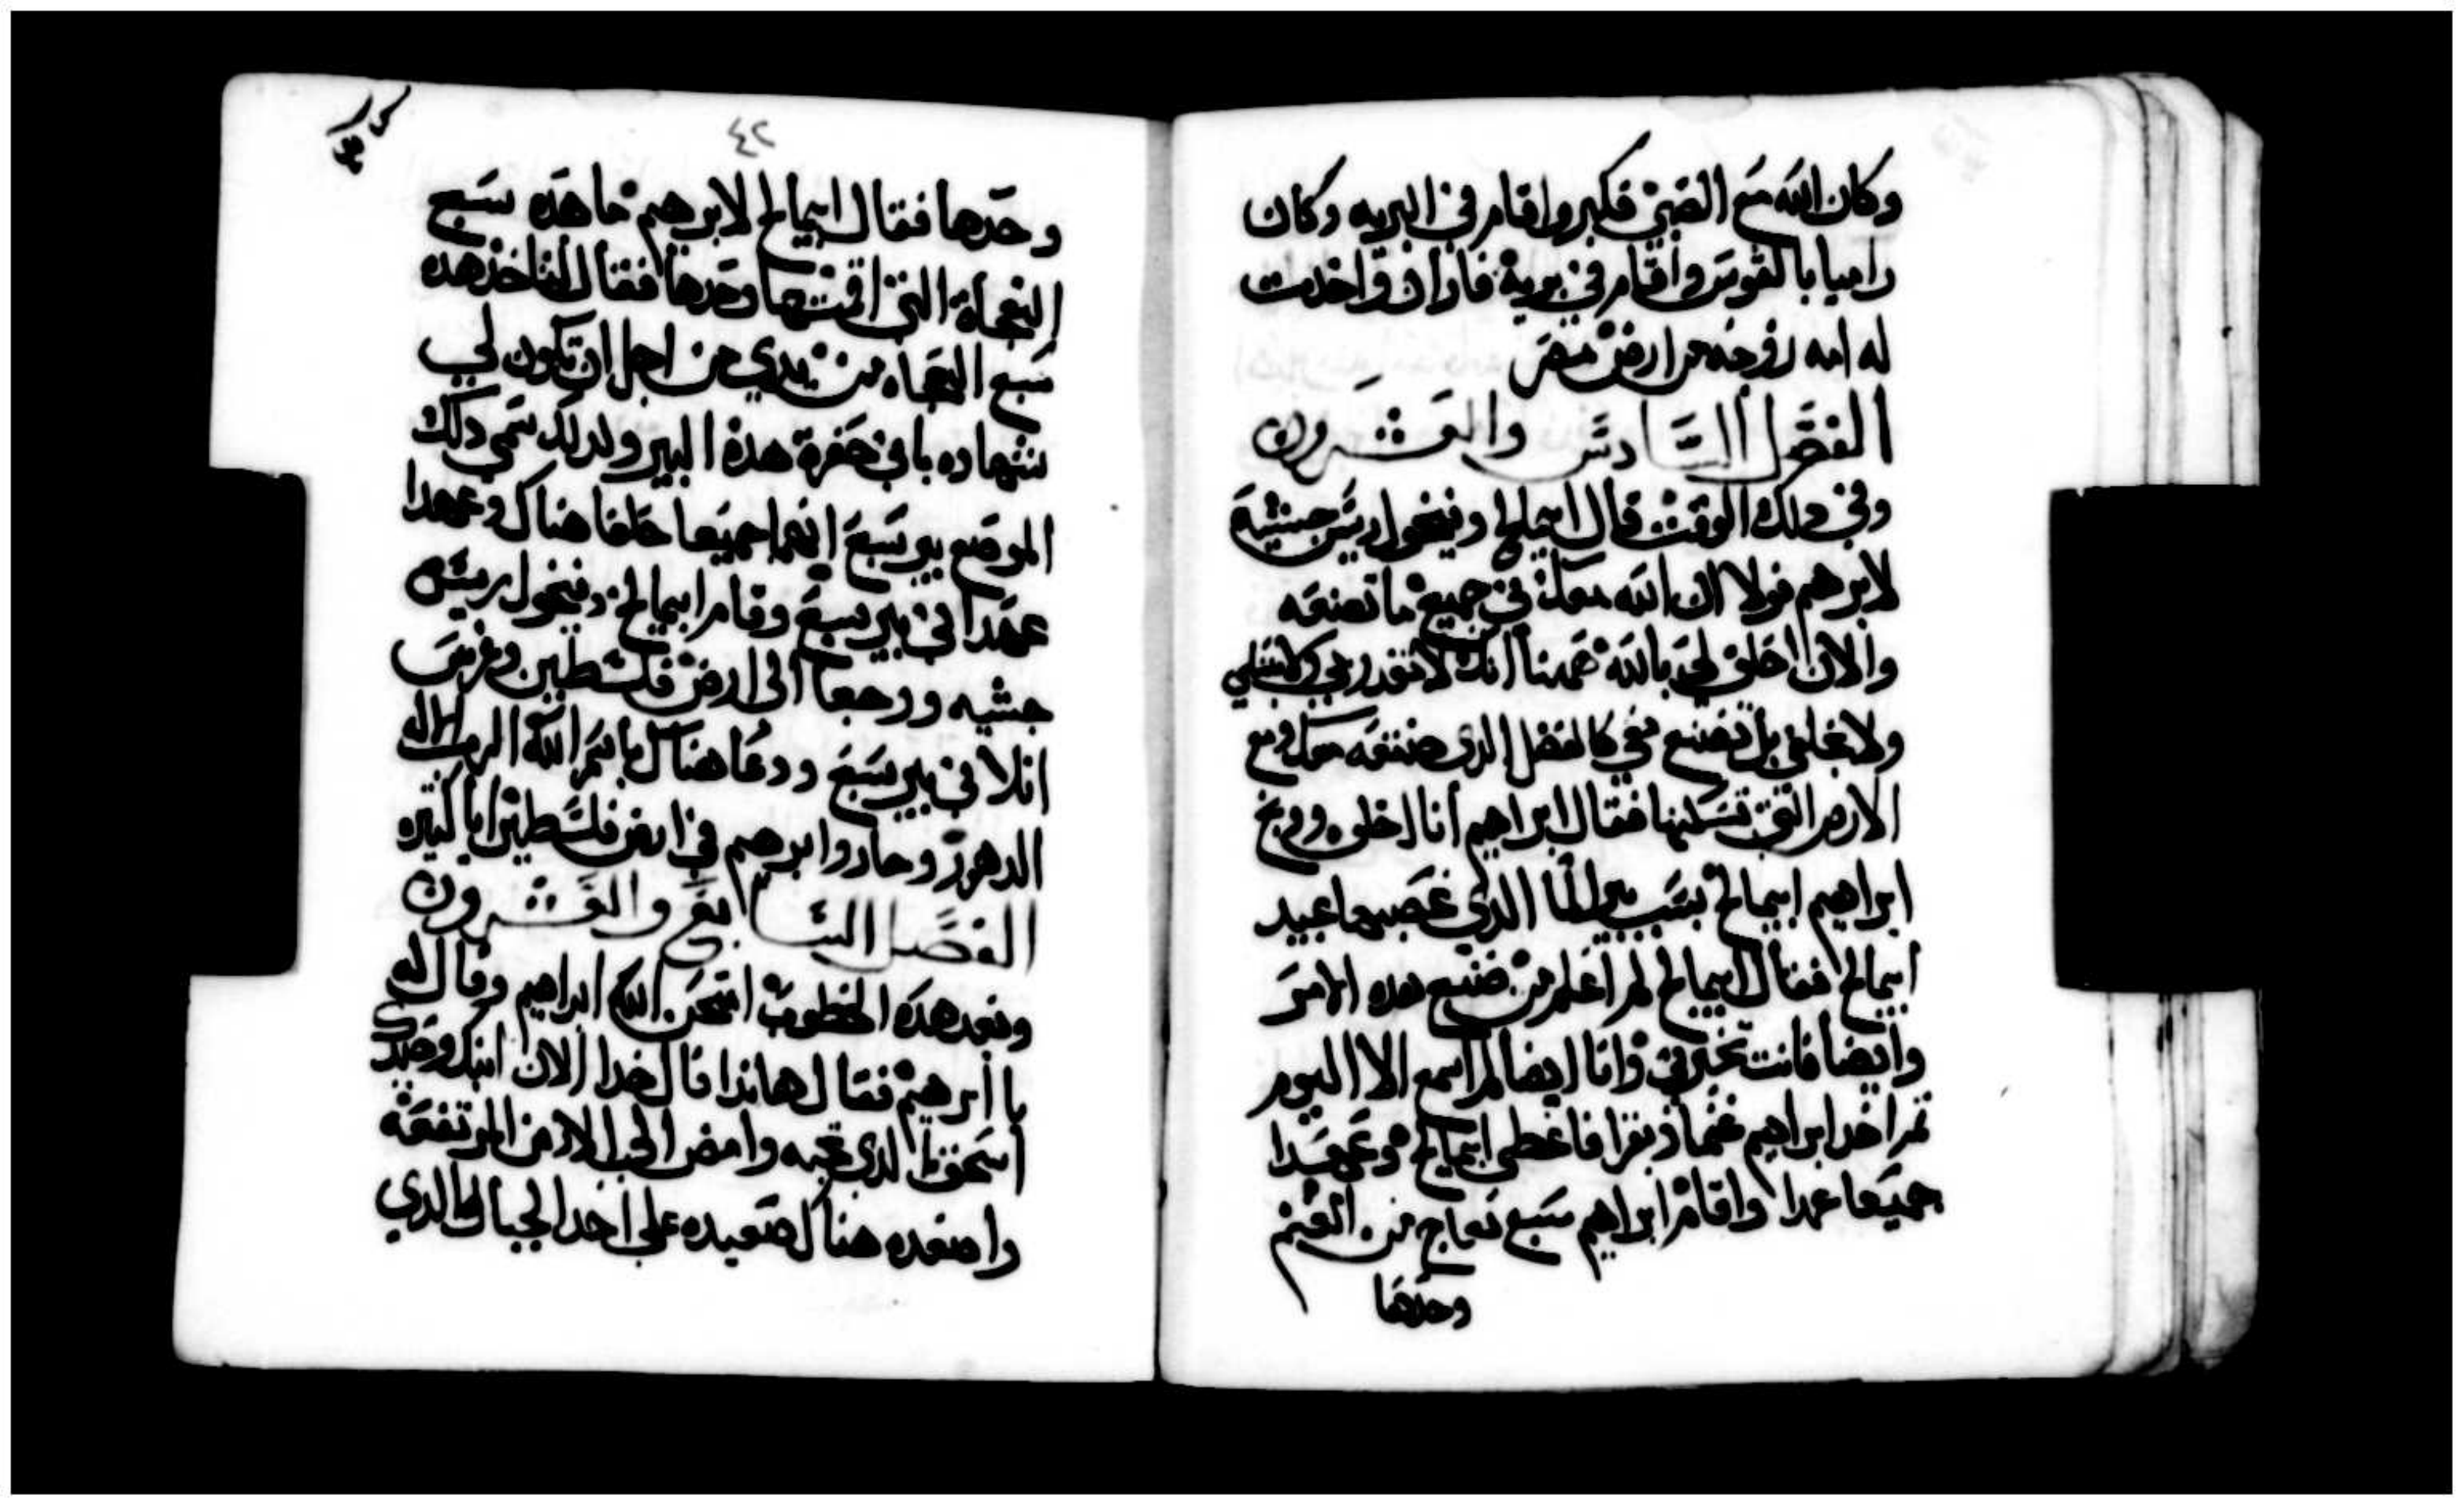 وكان الله مع الصبي فكبر واقام في البريه وكان
راميا بالقوس واقام في برية فاران واخدت
له امه زوجه من ارض مصر
الفصل السادس والعشرون
وفي دلك الوقت قال ابيمالخ وفيخول ريس جيشه
لابرهم قولا ان الله معك في جميع ما تصنعه
والان احلف لي بالله انك لا تغدر بي ولا بنسلي
ولا بل تصنع معي كالفضل الدي صنعته معك ومع
الارض التي تسكنها فقال ابراهيم انا احلف ووبخ
ابراهيم ابيمالخ بسبب بير الما الدي غصبها عبيد
ابيمالخ فقال ابيمالخ لم اعلم من صنع هده الامر
وايضا فانت تخبرني وانا ايضا لم اسمع الا اليوم
ثم اخد ابراهيم غنما وبقرا فاعطى ابيمالخ وعهدا
جميعا عهدا واقام ابراهيم سبع نعاج من الغنم
وحدها
٤٢
وحدها فقال ابيمالخ لابرهيم ما هده سبع
النعجاة التي اقمتها وحدها فقال انا خد هده
سبع النعجاه من يدي من اجل ان تكون لي
شهاده باني حفرة هدة البير ولدلك سمي دلك
الموضع بير سبع انهما جميعا حلفا هناك وعهدا
عهدا في بير سبع وقام ابيمالخ وفيخول ريس
جيشه ورجعا الى ارض فلسطين وغرس
اتلا في بير سبع ودعا هناك باسم الله الرب اله
الدهور وجاور ابرهيم في ارض فلسطين اياما كتيره
الفصل السابع والعشرون
وبعد هده الخطوب امتحن الله ابراهيم وقال له
يا ابرهيم فقال هاندا قال خد الان ابنك وحيدك
اسحق الدي تحبه وامض الى الارض المرتفعه
واصعده هناك صعيده على احد الجبال الدي